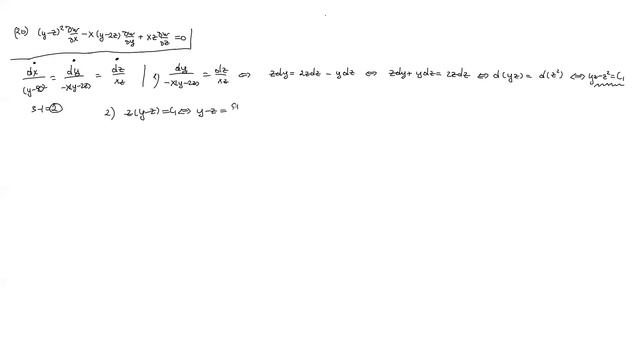 (20) (y-z)² ∂u/∂x - x(y-2z) ∂u/∂y + xz ∂u/∂z = 0
dx/(y-z)² = dy/-x(y-2z) = dz/xz | 1) dy/-x(y-2z) = dz/xz ⇔ zdy = 2zdz - ydz ⇔ zdy + ydz = 2zdz ⇔ d(yz) = d(z²) ⇔ yz-z² = C₁
3-1=2 2) z(y-z) = C₁ ⇔ y-z =